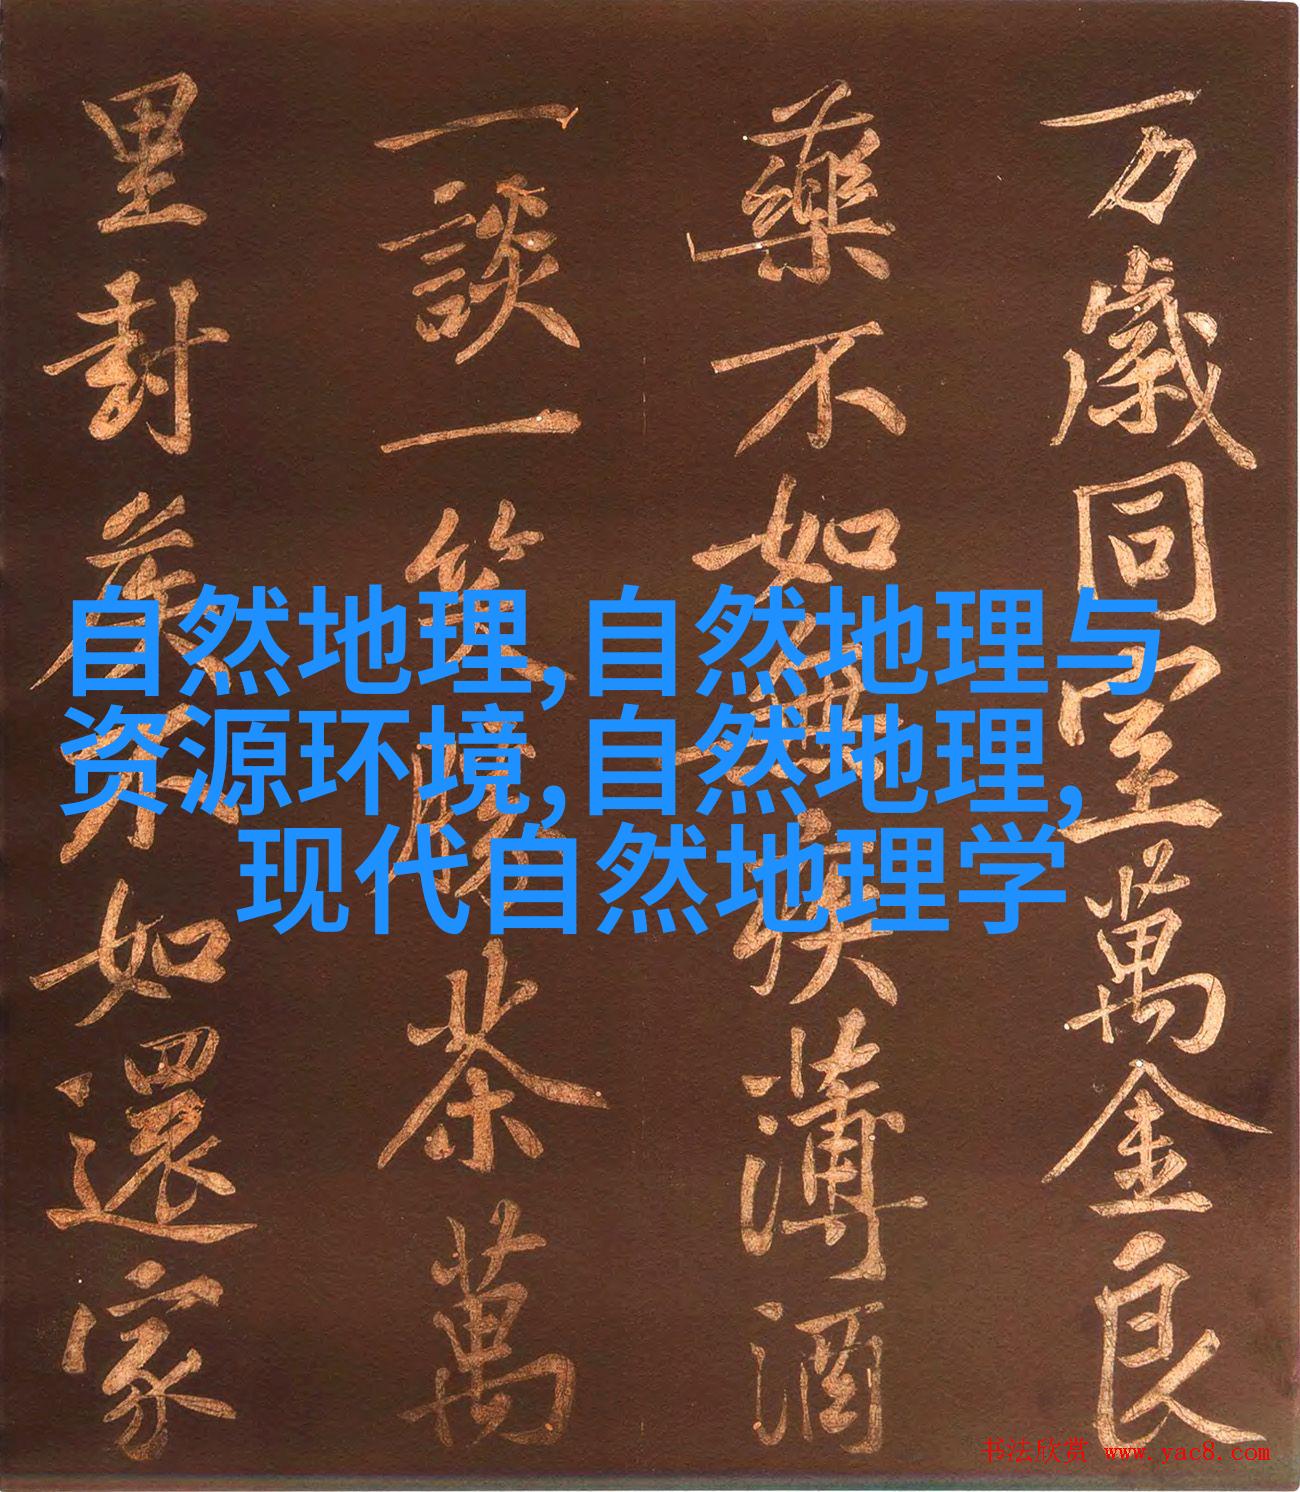 万歲同室萬金良
藥不如無疾薄酒
一談一笑勝茶萬
里封侯不如還家
自然地理,自然地理与
资源环境,自然地理,
现代自然地理学
书法欣赏 www.yac8.com